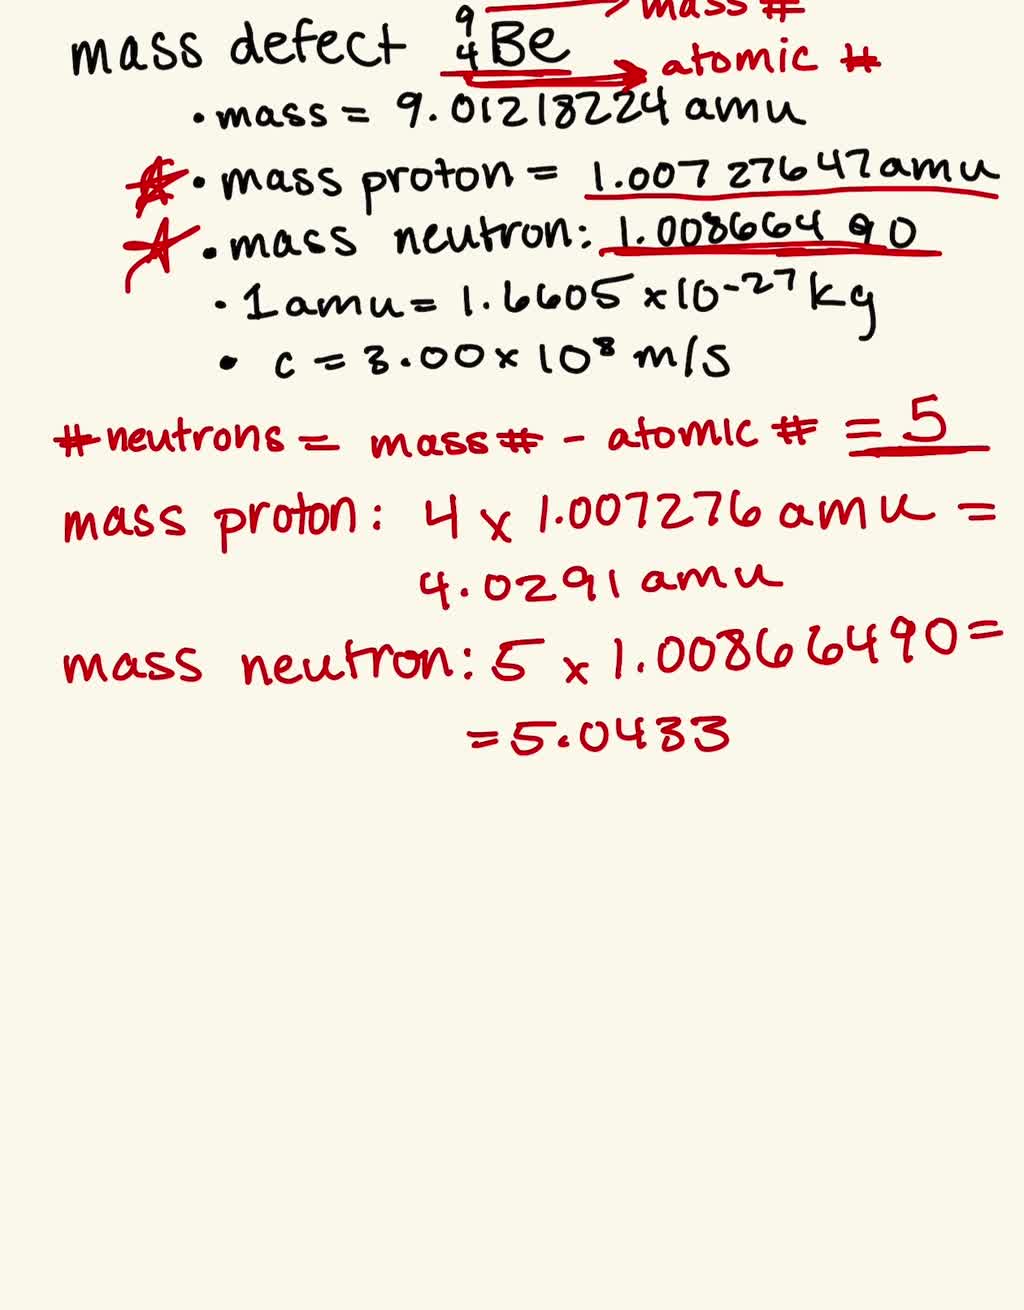 mass #
mass defect ⁹₄Be
atomic #
• mass = 9.01218224 amu
• mass proton = 1.00727647 amu
• mass neutron: 1.00866490
• 1 amu = 1.6605 x 10⁻²⁷ kg
• c = 3.00 x 10⁸ m/s
# neutrons = mass # - atomic # = 5
mass proton: 4 x 1.007276 amu =
4.0291 amu
mass neutron: 5 x 1.00866490 =
= 5.0433